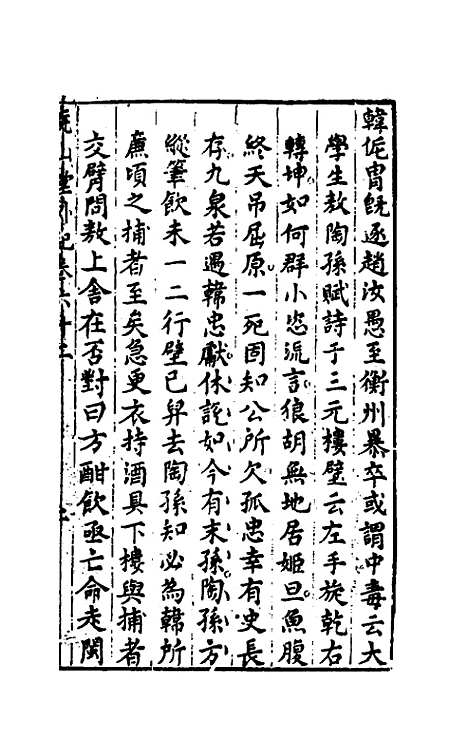 韓侂胄旣逐趙汝愚至衡州暴卒或謂中毒云大
學生敖陶孫賦詩于三元樓壁云左手旋乾右
轉坤如何群小恣流言狼胡無地居姬旦魚腹
終天吊屈原一死固知公所欠孤忠幸有史長
存九泉若遇韓忠獻休說如今有末孫陶孫方
縱筆飲未一二行壁已舁去陶孫知必為韓所
廉頃之捕者至矣急更衣持酒具下樓與捕者
交臂問敖上舍在否對曰方酣飲亟亡命走閩
堯山堂外紀卷六十三